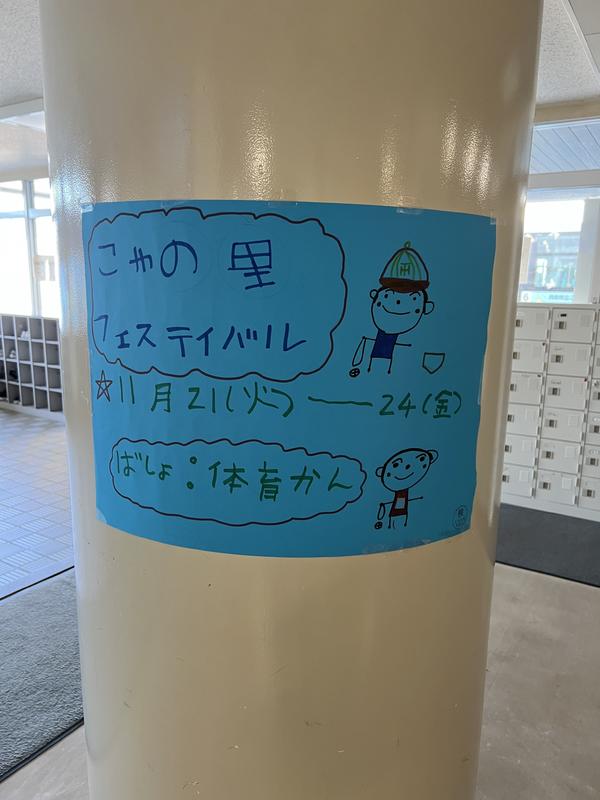 こやの 里
フェスティバル
☆11月21(火)——24(金)
ばしょ:体育かん